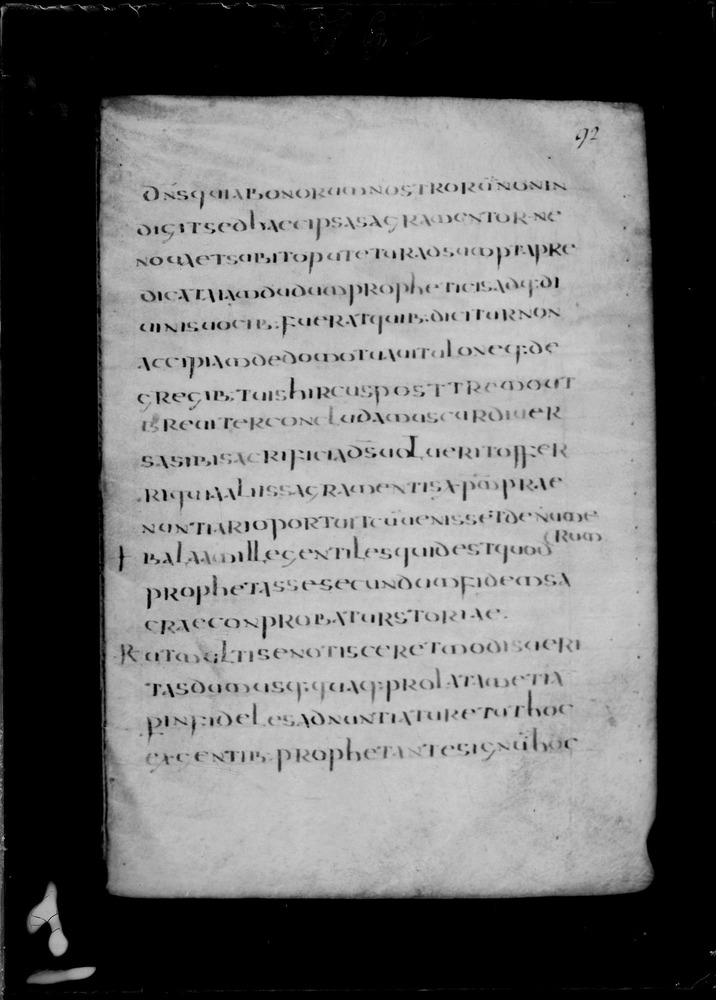 92
DN̄SQUIABONORUMNOSTRORŪNONIN
DIGITSEDHAECIPSASAGRAMENTORNE
NOUAETSUBITOPUTETURADSUMPTAPRE
DICATAIAMDUDUMPROPHETICISADQ·DI
UINISUOCIB·FUERATQUIB·DICITURNON
ACCIPIAMDEDOMOTUAUITULONEQ·DE
GREGIB·TUISHIRCUSPOSTTREMOUT
BREUITERCONCLUDAMUSCURDIUER
SASIBISACRIFICIAD̄S UOLUERITOFFER
RIQUIAALIISSAGRAMENTISXP̄M̄PRAE
NUNTIARIOPORTUITCŪUENISSETDENUME
RUM
BALAAMILLEGENTILESQUIDESTQUOD
PROPHETASSESECUNDUMFIDEMSA
CRAECONPROBATURSTORIAE·
R UTMULTISENOTISCERETMODISUERI
TASDUMUSQ·QUAQ·PROLATAMETIA
PINFIDELESADNUNTIATURETUTHOC
EXGENTIB·PROPHETANTESIGNŪHOC